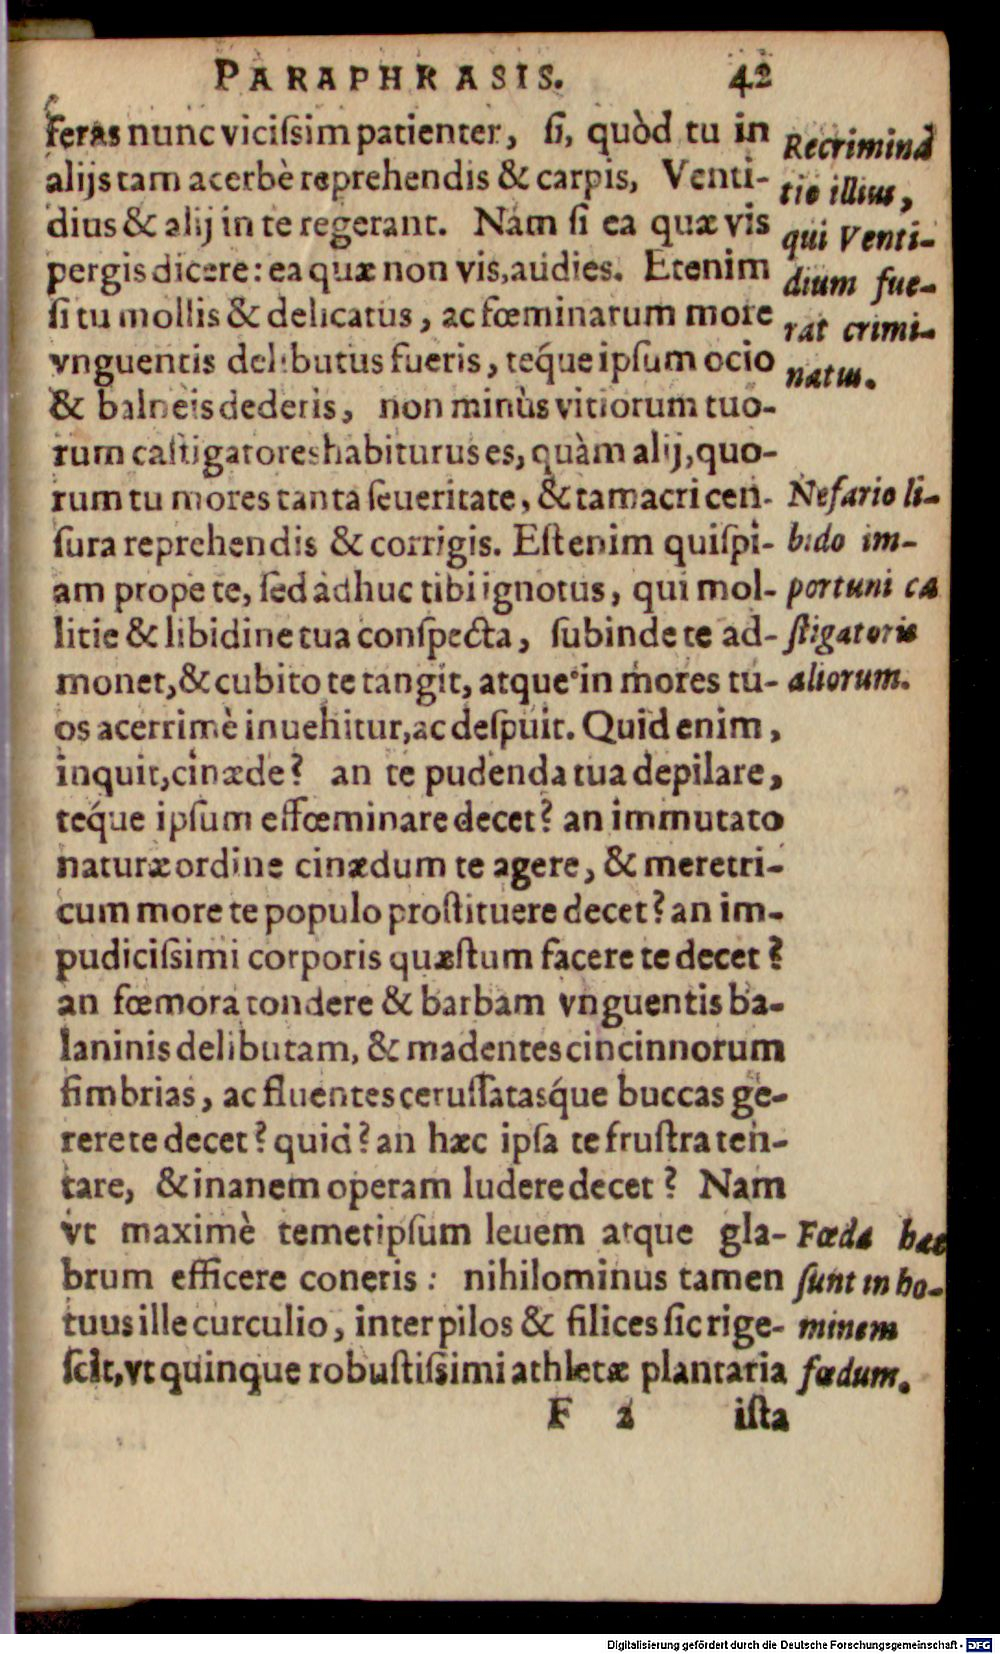 PARAPHRASIS. 42
feras nunc viciſsim patienter, ſi, quòd tu in
alijs tam acerbè reprehendis & carpis, Venti-
dius & alij in te regerant. Nam ſi ea quæ vis
pergis dicere: ea quæ non vis, audies. Etenim
ſi tu mollis & delicatus, ac fœminarum more
vnguentis delibutus fueris, teq́ue ipſum ocio
& balneis dederis, non minùs vitiorum tuo-
rum caſtigatores habiturus es, quàm alij, quo-
rum tu mores tanta ſeueritate, & tam acri cen-
ſura reprehendis & corrigis. Eſt enim quiſpi-
am prope te, ſed adhuc tibi ignotus, qui mol-
litie & libidine tua conſpecta, ſubinde te ad-
monet, & cubito te tangit, atque in mores tu-
os acerrimè inuehitur, ac deſpuit. Quid enim,
inquit, cinæde? an te pudenda tua depilare,
teq́ue ipſum effœminare decet? an immutato
naturæ ordine cinædum te agere, & meretri-
cum more te populo proſtituere decet? an im-
pudiciſsimi corporis quæſtum facere te decet?
an fœmora tondere & barbam vnguentis ba-
laninis delibutam, & madentes cincinnorum
fimbrias, ac fluentes ceruſſatasq́ue buccas ge-
rere te decet? quid? an hæc ipſa te fruſtra ten-
tare, & inanem operam ludere decet? Nam
vt maximè temetipſum leuem atque gla-
brum efficere coneris: nihilominus tamen
tuus ille curculio, inter pilos & filices ſic rige-
ſcit, vt quinque robuſtiſsimi athletæ plantaria
F 2 iſta
Recriminà
tio illius,
qui Venti-
dium fue-
rat crimi-
natus.
Nefario li-
bido im-
portuni ca
ſtigatoris
aliorum.
Fœda hæc
ſunt in ho-
minem
fœdum.
Digitalisierung gefördert durch die Deutsche Forschungsgemeinschaft - DFG